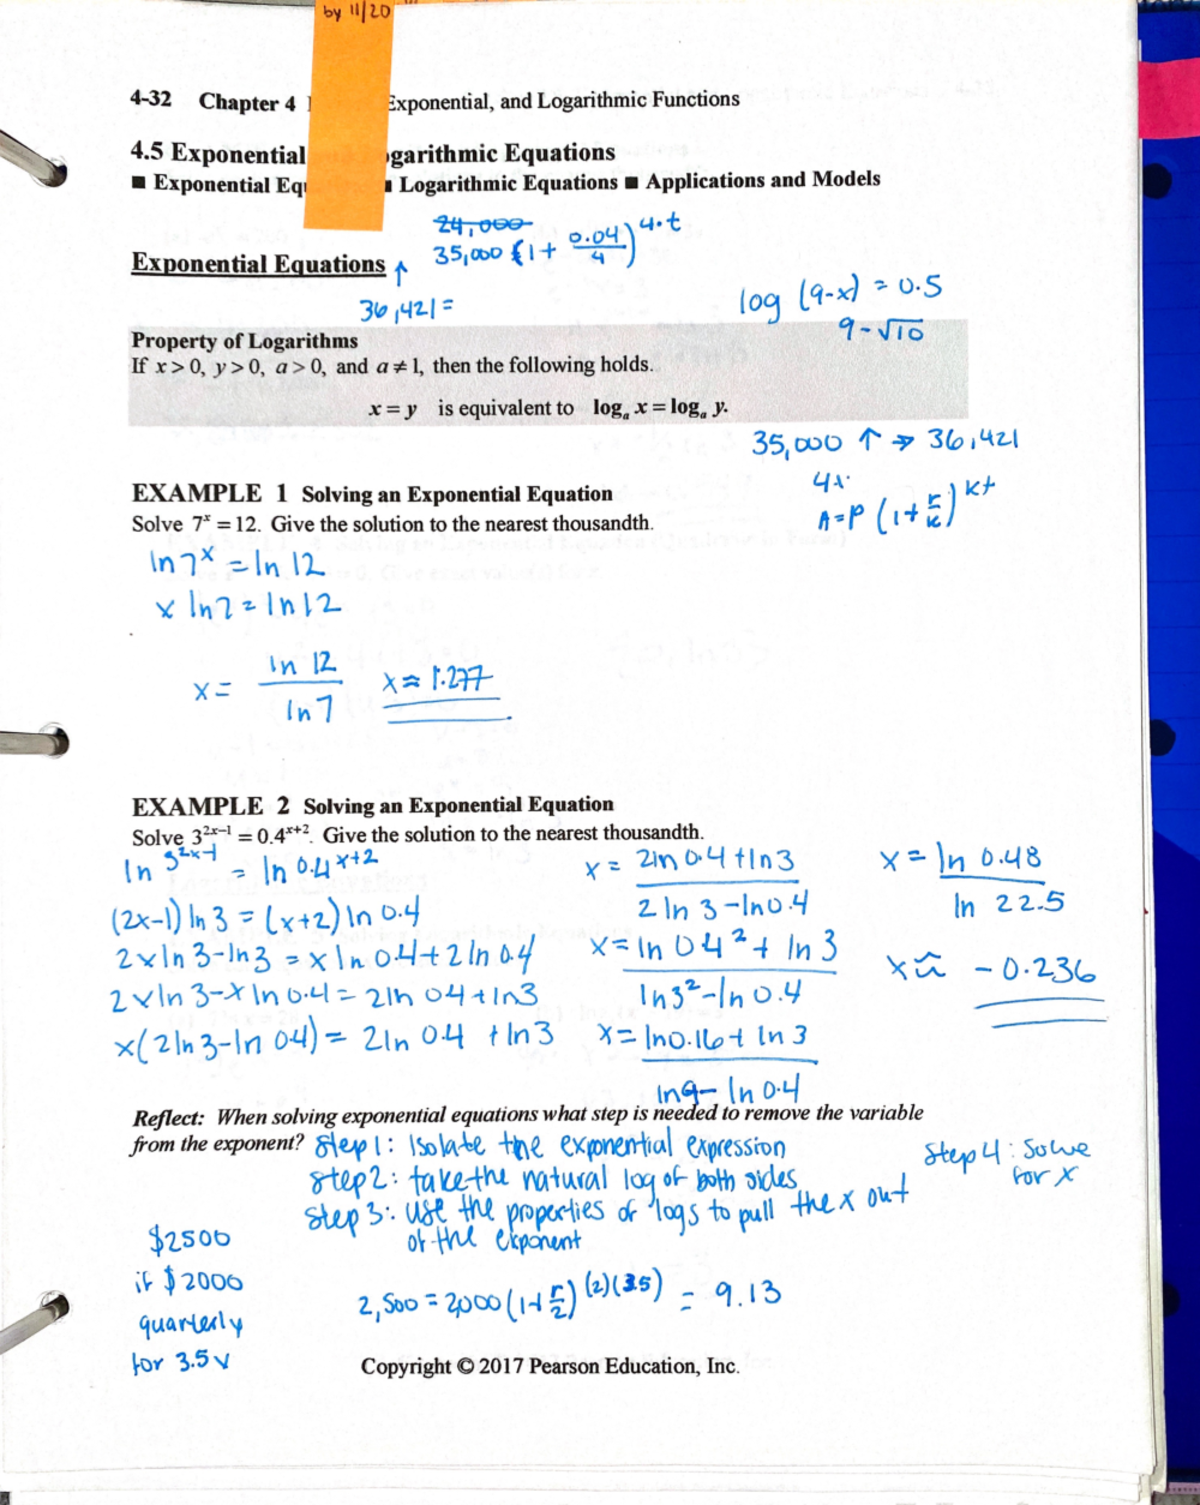 by 11/20
4-32 Chapter 4 Exponential, and Logarithmic Functions
4.5 Exponential garithmic Equations
■ Exponential Eq ■ Logarithmic Equations ■ Applications and Models
24,000
35,000 (1 + 0.04/4)^4·t
Exponential Equations ↑
36,421 =
log (9-x) = 0.5
9-√10
Property of Logarithms
If x > 0, y > 0, a > 0, and a ≠ 1, then the following holds.
x = y is equivalent to logₐ x = logₐ y.
35,000 ↑ → 36,421
A=P (1+ r/k)^kt
EXAMPLE 1 Solving an Exponential Equation
Solve 7^x = 12. Give the solution to the nearest thousandth.
ln 7^x = ln 12
x ln 7 = ln 12
x = ln 12 / ln 7 x ≈ 1.277
EXAMPLE 2 Solving an Exponential Equation
Solve 3^2x−1 = 0.4^x+2. Give the solution to the nearest thousandth.
ln 3^2x-1 = ln 0.4^x+2
(2x-1) ln 3 = (x+2) ln 0.4
2x ln 3 - ln 3 = x ln 0.4 + 2 ln 0.4
2x ln 3 - x ln 0.4 = 2 ln 0.4 + ln 3
x(2 ln 3 - ln 0.4) = 2 ln 0.4 + ln 3
x = 2 ln 0.4 + ln 3 / 2 ln 3 - ln 0.4
x = ln 0.4² + ln 3 / ln 3² - ln 0.4
x = ln 0.16 + ln 3 / ln 9 - ln 0.4
x = ln 0.48 / ln 22.5
x ≈ -0.236
Reflect: When solving exponential equations what step is needed to remove the variable
from the exponent? Step 1: Isolate the exponential expression
Step 2: take the natural log of both sides
Step 3: use the properties of logs to pull the x out
of the exponent
Step 4: Solve
for x
$2500
if $2000
quarterly
for 3.5 y
2,500 = 2,000 (1+ r/2)^(2)(3.5) = 9.13
Copyright © 2017 Pearson Education, Inc.